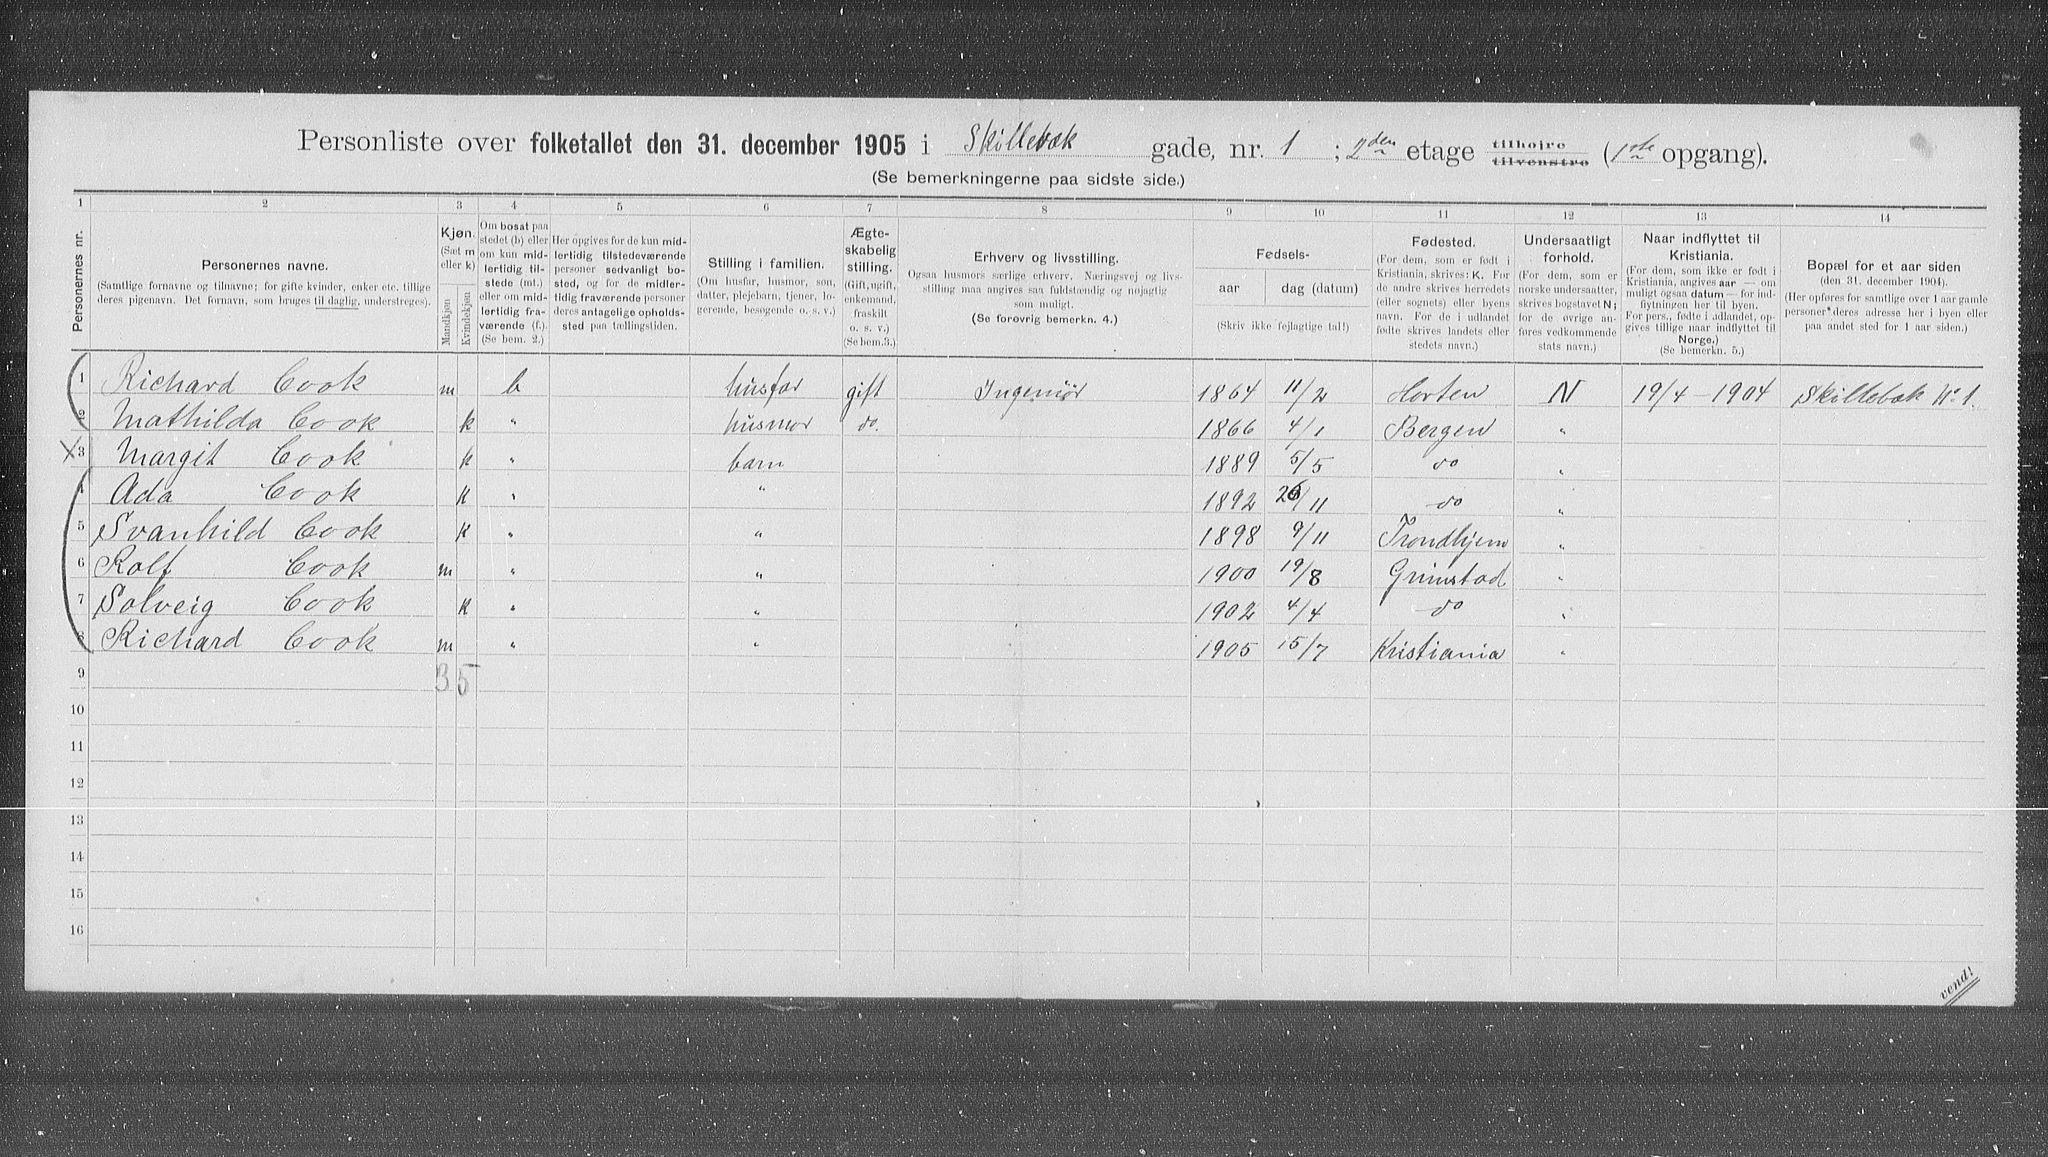 Personliste over folketallet den 31. december 1905 i Skillebæk gade, nr. 1 ; 2den etage tilhøjre tilvenstre (1ste opgang).
(Se bemerkningerne paa sidste side.)
1 2 3 4 5 6 7 8 9 10 11 12 13 14
Personernes nr.
Personernes navne.
(Samtlige fornavne og tilnavne; for gifte kvinder, enker etc. tillige
deres pigenavn. Det fornavn, som bruges til daglig, understreges).
Kjøn.
(Sæt m
eller k)
Mandkjøn
Kvindekjøn
Om bosat paa
stedet (b) eller
om kun mid-
lertidig til-
stede (mt.)
eller om mid-
lertidig fra-
værende (f.).
(Se bem. 2.)
Her opgives for de kun mid-
lertidig tilstedeværende
personer sedvanligt bo-
sted, og for de midler-
tidig fraværende personer
deres antagelige opholds-
sted paa tællingstiden.
Stilling i familien.
(Om husfar, husmor, søn,
datter, plejebarn, tjener, lo-
gerende, besøgende o. s. v.)
Ægte-
skabelig
stilling.
(Gift, ugift,
enkemand,
fraskilt
o. s. v.)
(Se bem.3.)
Erhverv og livsstilling.
Ogsaa husmors særlige erhverv. Næringsvej og livs-
stilling maa angives saa fuldstændig og nøjagtig
som muligt.
(Se forøvrig bemerkn. 4.)
Fødsels-
aar
dag (datum)
(Skriv ikke fejlagtige tal!)
Fødested.
(For dem, som er født i
Kristiania, skrives: K. For
de andre skrives herredets
(eller sognets) eller byens
navn. For de i udlandet
fødte skrives landets eller
stedets navn.)
Undersaatligt
forhold.
(For dem, som er
norske undersaatter,
skrives bogstavet N;
for de øvrige an-
føres vedkommende
stats navn.)
Naar indflyttet til
Kristiania.
(For dem, som ikke er født i
Kristiania, angives aar — om
muligt ogsaa datum — for ind-
flytningen her til byen.
For pers., fødte i udlandet, op-
gives tillige naar indflyttet til
Norge.)
(Se bemerkn. 5.)
Bopæl for et aar siden
(den 31. december 1904).
(Her opføres for samtlige over 1 aar gamle
personer deres adresse her i byen eller
paa andet sted for 1 aar siden.)
1 Richard Cook m b husfar gift Ingeniør 1864 11/2 Horten N 19/4 - 1904 Skillebæk No 1.
2 Mathilda Cook k " husmor do. 1866 4/1 Bergen "
X 3 Margit Cook k " barn 1889 5/5 do "
4 Ada Cook k " " 1892 26/11 do "
5 Svanhild Cook k " " 1898 9/11 Trondhjem "
6 Rolf Cook m " " 1900 19/8 Grimstad "
7 Solveig Cook k " " 1902 4/4 do "
8 Richard Cook m " " 1905 15/7 Kristiania "
9 3 5
10
11
12
13
14
15
16
vend!